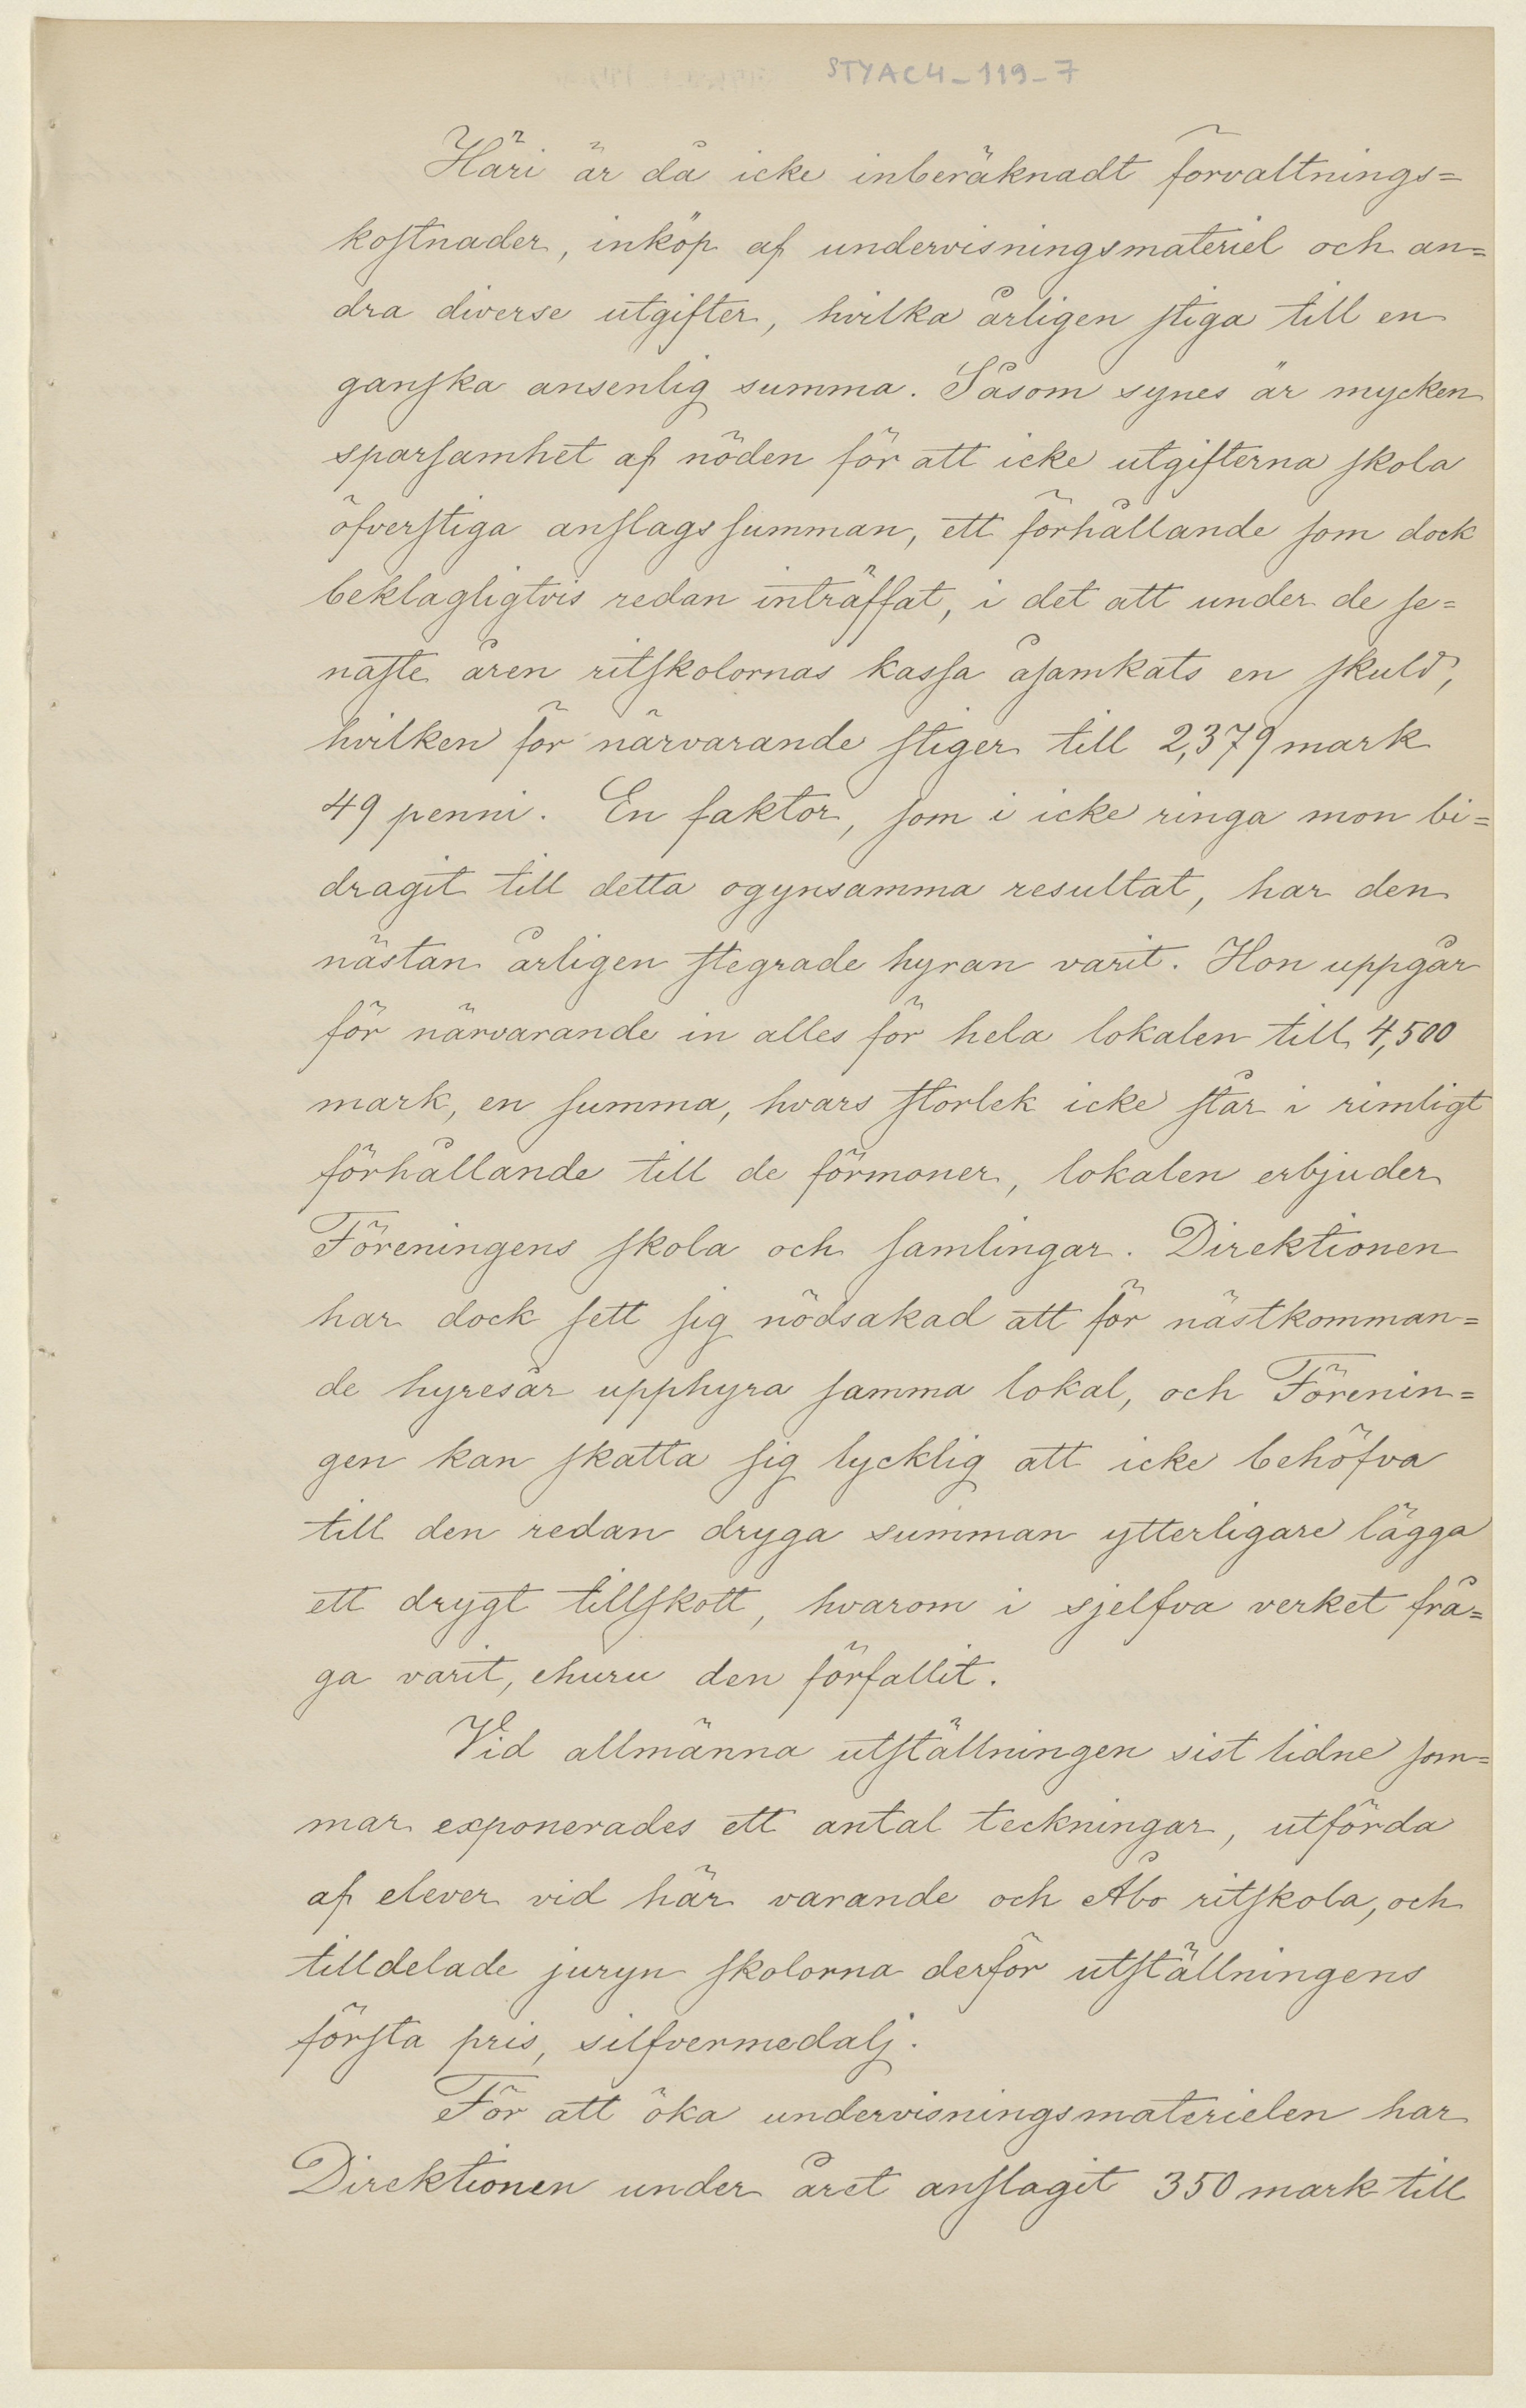 STYAC4-119-7
Häri är då icke inberäknadt förvaltnings=
kostnader, inköp af undervisningsmateriel och an=
dra diverse utgifter, hvilka årligen stiga till en
ganska ansenlig summa. Såsom synes är mycken
sparsamhet af nöden för att icke utgifterna skola
öfverstiga anslagssumman, ett förhållande som dock
beklagligtvis redan inträffat, i det att under de se=
naste åren ritskolornas kassa åsamkats en skuld,
hvilken för närvarande stiger till 2,379 mark
49 penni. En faktor, som i icke ringa mon bi=
dragit till detta ogynsamma resultat, har den
nästan årligen stegrade hyran varit. Hon uppgår
för närvarande in alles för hela lokalen till 4,500
mark, en summa, hvars storlek icke står i rimligt
förhållande till de förmoner, lokalen erbjuder
Föreningens skola och samlingar. Direktionen
har dock sett sig nödsakad att för nästkomman=
de hyresår upphyra samma lokal, och Förenin=
gen kan skatta sig lycklig att icke behöfva
till den redan dryga summan ytterligare lägga
ett drygt tillskott, hvarom i sjelfva verket frå=
ga varit, ehuru den förfallit.
Vid allmänna utställningen sist lidne som=
mar exponerades ett antal teckningar, utförda
af elever vid här varande och Åbo ritskola, och
tilldelade juryn skolorna derför utställningens
första pris, silfvermedalj.
För att öka undervisningsmaterielen har
Direktionen under året anslagit 350 mark till